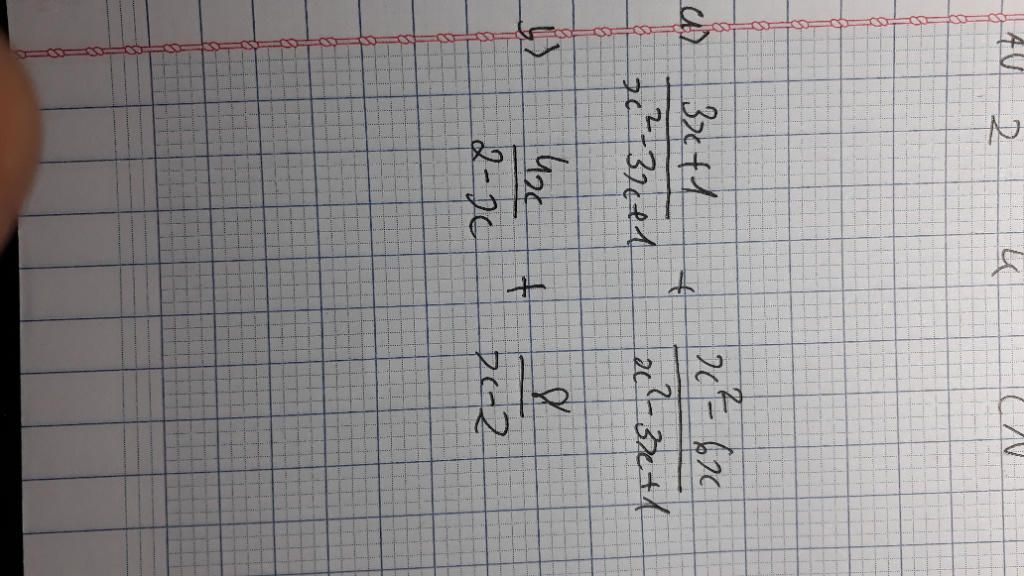 a) \frac{3x+1}{x^2-3x+1} + \frac{x^2-6x}{x^2-3x+1}
b) \frac{4x}{2-x} + \frac{8}{x-2}